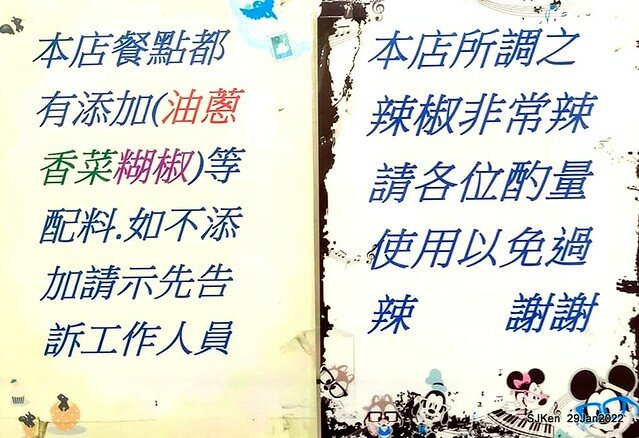 本店餐點都
有添加(油蔥
香菜糊椒)等
配料.如不添
加請示先告
訴工作人員
1
本店所調之
辣椒非常辣
請各位酌量
使用以免過
辣 謝謝
SJKen 29Jan2022